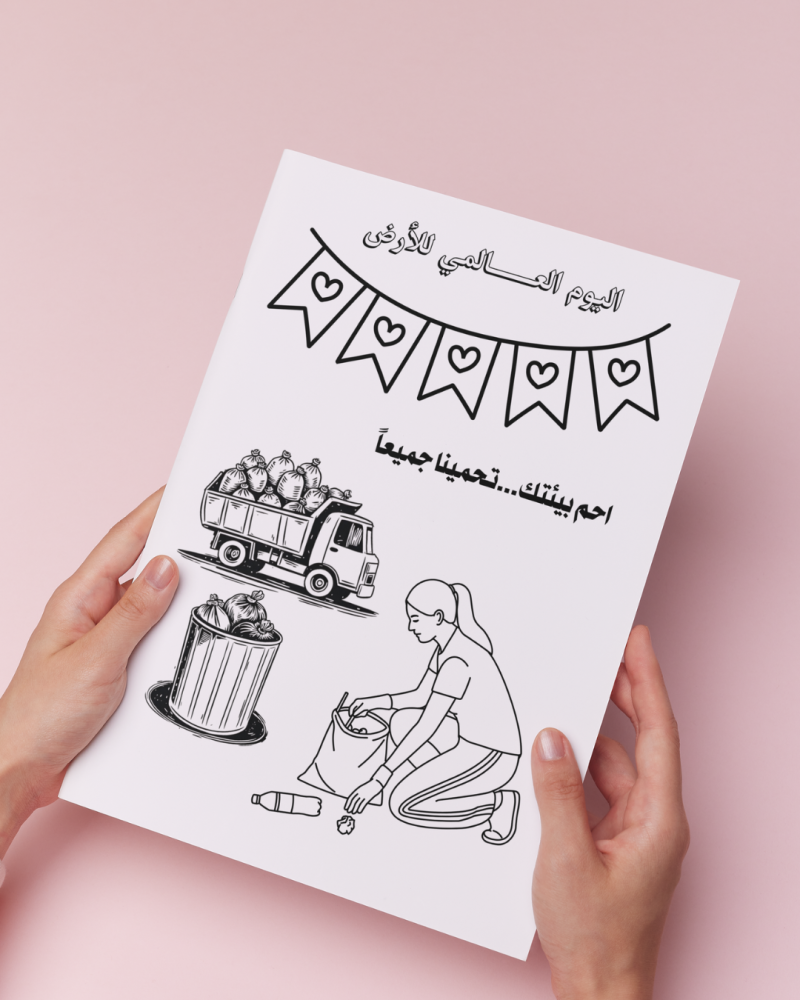 اليوم العـــالمي للأرض
احم بيئتك...تحمينا جميعاً